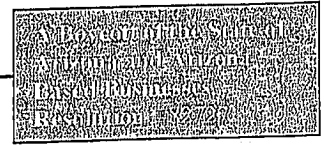 A Boycott of the State of
Arizona and Arizona
Based Business
Resolution